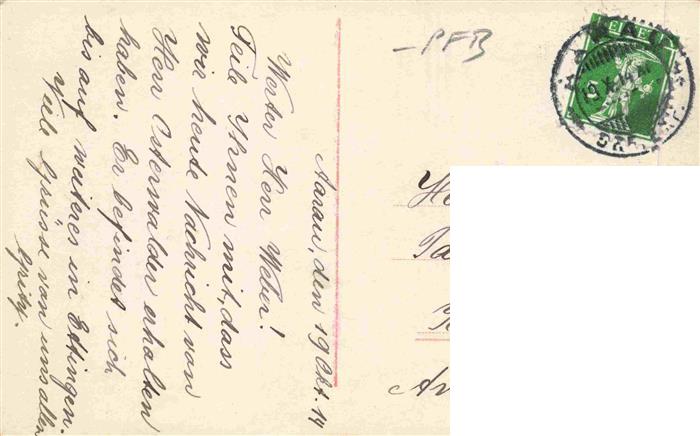 Aarau, den 19 Okt. 14
Werter Herr Weber!
Teile Ihnen mit, dass
wir heute Nachricht von
Herr Osterwalder erhalten
haben. Er befindet sich
bis auf weiteres in Ettingen.
Viele Grüsse von uns allen
Fritz.
-PFB